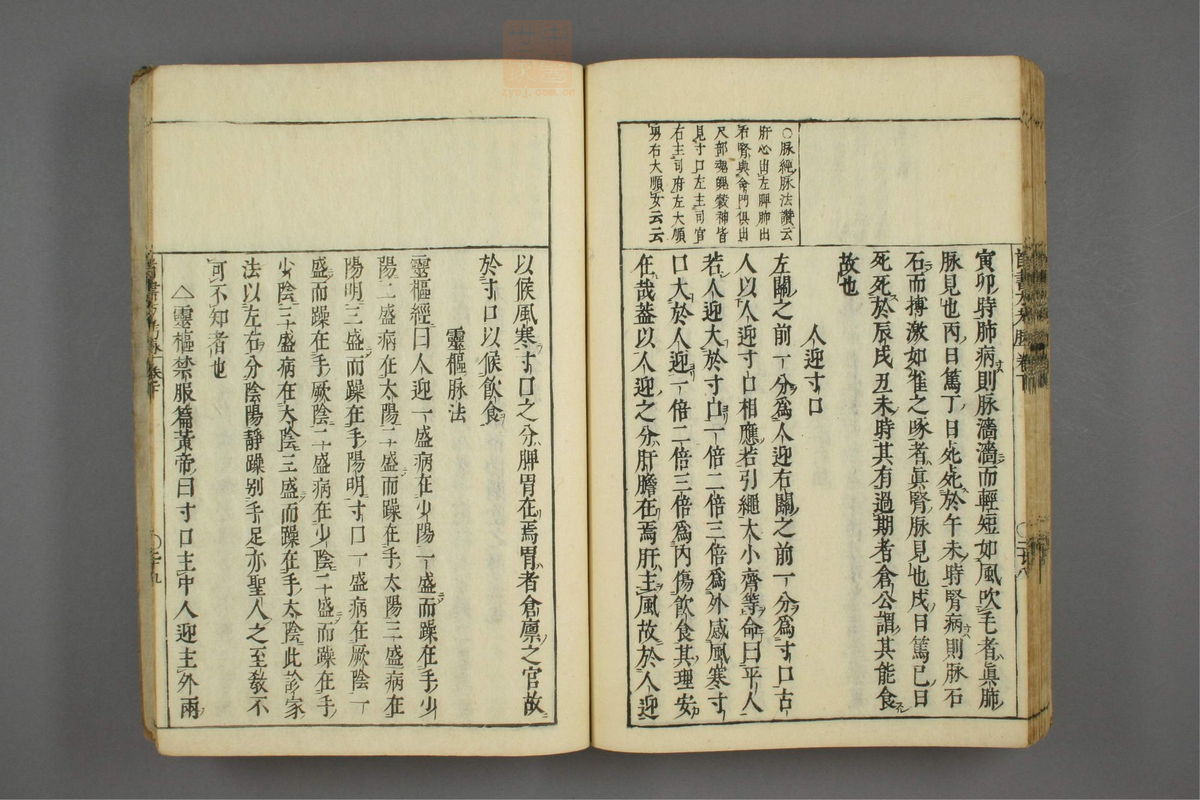 寅卯時肺病則脉濇濇而輕短如風吹毛者眞肺
脉見也丙日篤丁日死死於午未時腎病則脉石
石而搏激如雀之啄者眞腎脉見也戌日篤巳日
死死於辰戌丑未時其有過期者倉公謂其能食
故也
人迎寸口
左關之前一分爲人迎右關之前一分爲寸口古
人以人迎寸口相應若引繩大小齊等命曰平人
若人迎大於寸口一倍二倍三倍爲外感風寒寸
口大於人迎一倍二倍三倍爲内傷飲食其理安
在哉蓋以人迎之分肝膽在焉肝主風故於人迎
○脉經脉法讚云
肝心出左脾肺出
右腎與命門俱出
尺部魂魄穀神皆
見寸口左主司官
右主司府左大順
男右大順女云云
以候風寒寸口之分脾胃在焉胃者倉廪之官故
於寸口以候飲食
靈樞脉法
靈樞經曰人迎一盛病在少陽一盛而躁在手少
陽二盛病在太陽二盛而躁在手太陽三盛病在
陽明三盛而躁在手陽明寸口一盛病在厥陰一
盛而躁在手厥陰二盛病在少陰二盛而躁在手
少陰三盛病在太陰三盛而躁在手太陰此診家
法以左右分陰陽靜躁别手足亦聖人之至敎不
可不知者也
△靈樞禁服篇黃帝曰寸口主中人迎主外兩